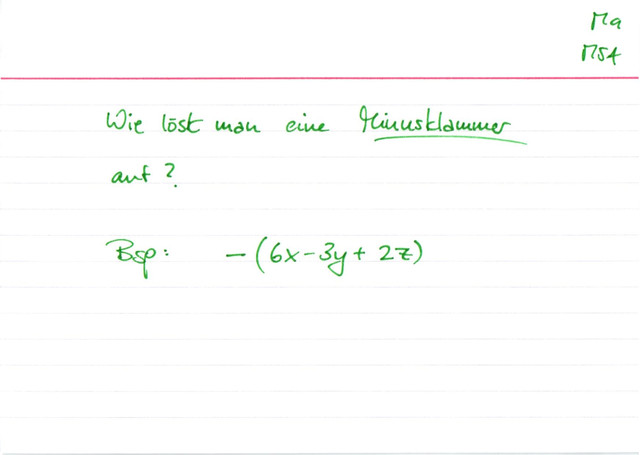 Ma
MSA
Wie löst man eine Minusklammer
auf?
Bsp: -(6x-3y+2z)